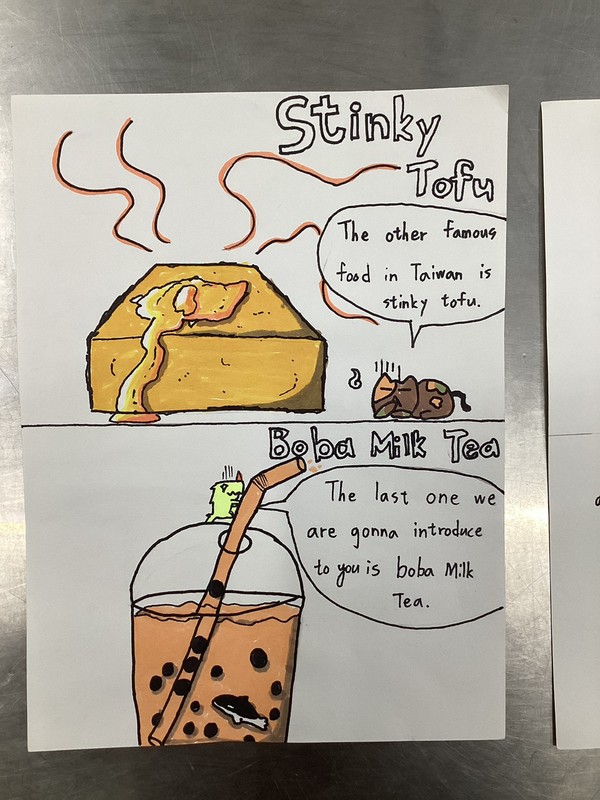 Stinky
Tofu
The other famous
food in Taiwan is
stinky tofu.
Boba Milk Tea
The last one we
are gonna introduce
to you is boba Milk
Tea.